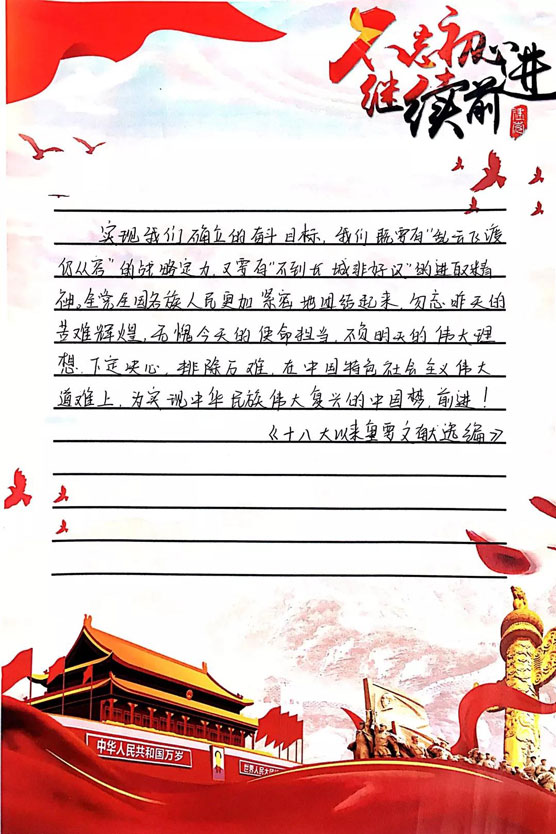 不忘初心
继续前进
实现我们确立的奋斗目标，我们既要有“乱云飞渡
仍从容”的战略定力，又要有“不到长城非好汉”的进取精
神。全党全国各族人民更加紧密地团结起来，勿忘昨天的
苦难辉煌，无愧今天的使命担当，不负明天的伟大理
想，下定决心，排除万难，在中国特色社会主义伟大
道难上，为实现中华民族伟大复兴的中国梦，前进！
《十八大以来重要文献选编》
中华人民共和国万岁
世界人民大团结